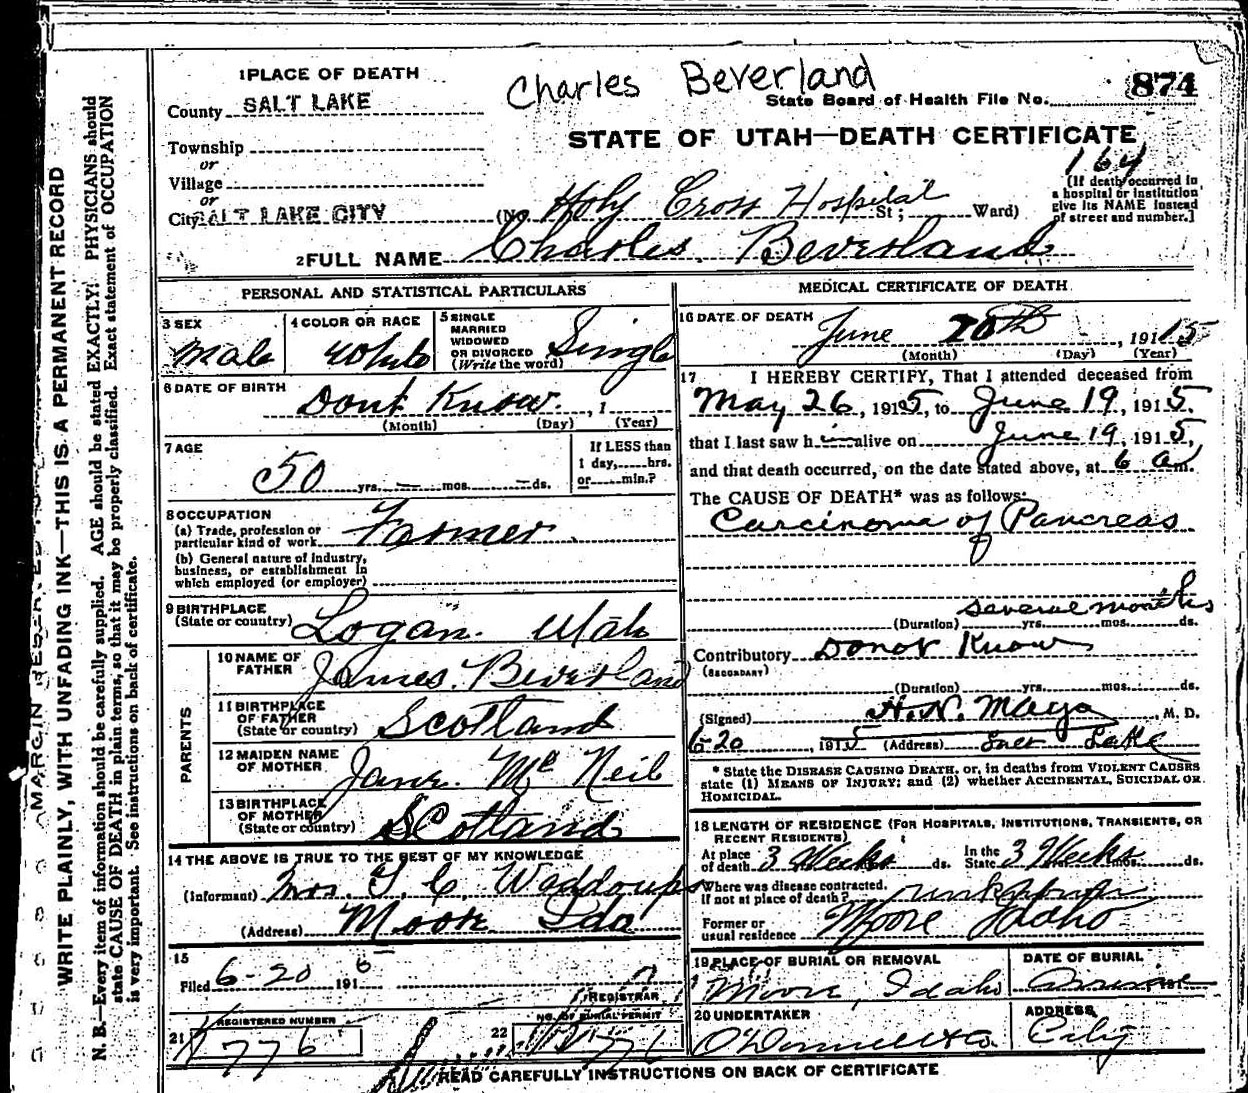 1 PLACE OF DEATH
Charles Beverland
874
County SALT LAKE
State Board of Health File No.
Township
STATE OF UTAH—DEATH CERTIFICATE
or
164
Village
or
City SALT LAKE CITY
(No. Holy Cross Hospital St; Ward)
(If death occurred in a hospital or institution give its NAME instead of street and number.]
2 FULL NAME Charles Beverland
PERSONAL AND STATISTICAL PARTICULARS
3 SEX
Male
4 COLOR OR RACE
White
5 SINGLE
MARRIED
WIDOWED
OR DIVORCED
(Write the word)
Single
6 DATE OF BIRTH
Dont Know, 1
(Month) (Day) (Year)
7 AGE
50 yrs. — mos. — ds.
If LESS than
1 day, hrs.
or min.?
8 OCCUPATION
(a) Trade, profession or
particular kind of work Farmer
(b) General nature of industry,
business, or establishment in
which employed (or employer)
9 BIRTHPLACE
(State or country) Logan. Utah
PARENTS
10 NAME OF
FATHER James. Beverland
11 BIRTHPLACE
OF FATHER
(State or country) Scotland
12 MAIDEN NAME
OF MOTHER Jane. Mc Neil
13 BIRTHPLACE
OF MOTHER
(State or country) Scotland
14 THE ABOVE IS TRUE TO THE BEST OF MY KNOWLEDGE
(Informant) Mrs. T. C. Waddoups
(Address) Moore Ida
15
Filed 6-20 191
REGISTRAR
21 REGISTERED NUMBER
776
22 NO. OF BURIAL PERMIT
MEDICAL CERTIFICATE OF DEATH
16 DATE OF DEATH
June 20th, 1915
(Month) (Day) (Year)
17 I HEREBY CERTIFY, That I attended deceased from
May 26, 1915, to June 19, 1915.
that I last saw him alive on June 19, 1915,
and that death occurred, on the date stated above, at 6 a m.
The CAUSE OF DEATH* was as follows:
Carcinoma of Pancreas
several months
(Duration) yrs. mos. ds.
Contributory Donot Know
(SECONDARY)
(Duration) yrs. mos. ds.
(Signed) H. N. Mayo, M. D.
6-20, 1915 (Address) Salt Lake
* State the DISEASE CAUSING DEATH, or, in deaths from VIOLENT CAUSES
state (1) MEANS OF INJURY; and (2) whether ACCIDENTAL, SUICIDAL OR
HOMICIDAL.
18 LENGTH OF RESIDENCE (FOR HOSPITALS, INSTITUTIONS, TRANSIENTS, OR
RECENT RESIDENTS)
At place
of death 3 Weeks ds.
In the
State 3 Weeks mos. ds.
Where was disease contracted,
if not at place of death?
Former or
usual residence Moore Idaho
19 PLACE OF BURIAL OR REMOVAL
Moore, Idaho
DATE OF BURIAL
20 UNDERTAKER
O'Donnell & Co.
ADDRESS
City
READ CAREFULLY INSTRUCTIONS ON BACK OF CERTIFICATE
WRITE PLAINLY, WITH UNFADING INK—THIS IS A PERMANENT RECORD
N. B.—Every item of information should be carefully supplied. AGE should be stated EXACTLY. PHYSICIANS should
state CAUSE OF DEATH in plain terms, so that it may be properly classified. Exact statement of OCCUPATION
is very important. See instructions on back of certificate.